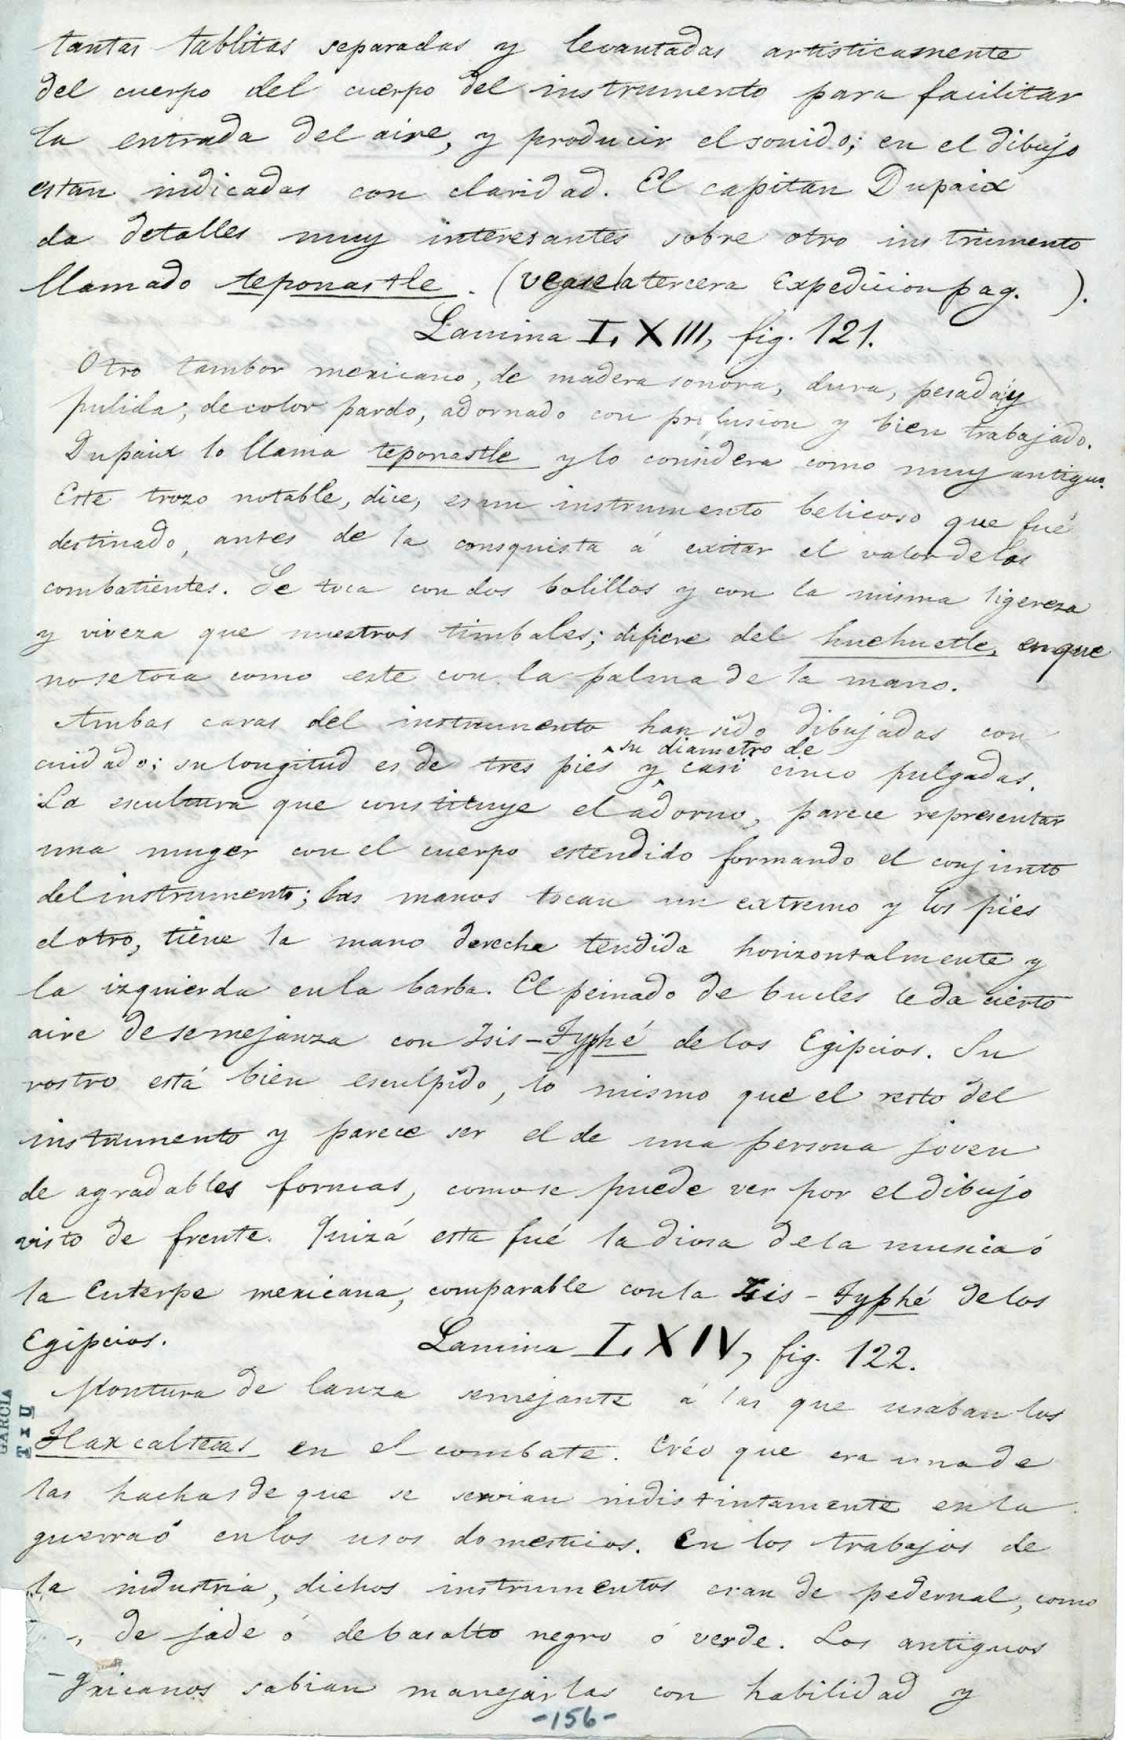 tantas tablitas separadas y levantadas artisticamente
del cuerpo del cuerpo del instrumento para facilitar
la entrada del aire, y producir el sonido; en el dibujo
estan indicadas con claridad. El capitan Dupaix
da detalles muy interesantes sobre otro instrumento
llamado teponastle. (vease la tercera Expedicion pag. ).
Lamina LXIII, fig. 121.
Otro tambor mexicano, de madera sonora, dura, pesada y
pulida; de color pardo, adornado con profusion y bien trabajado.
Dupaix lo llama teponastle y lo considera como muy antiguo.
Este trozo notable, dice, es un instrumento belicoso que fué
destinado, antes de la consquista á exitar el valor de los
combatientes. Se toca con dos bolillos y con la misma ligereza
y viveza que nuestros timbales; difiere del huehuetle, en que
no se toca como este con la palma de la mano.
Ambas caras del instrumento han sido dibujadas con
su diametro de
cuidado; su longitud es de tres pies y casi cinco pulgadas.
La escultura que constituye el adorno, parece representar
una muger con el cuerpo estendido formando el conjunto
del instrumento; las manos tocan un extremo y los pies
el otro, tiene la mano derecha tendida horizontalmente y
la izquierda en la barba. El peinado de bucles le da cierto
aire de semejanza con Isis-Fyphé de los Egipcios. Su
rostro está bien esculpido, lo mismo que el resto del
instrumento y parece ser el de una persona joven
de agradables formas, como se puede ver por el dibujo
visto de frente. Quizá esta fué la diosa de la musica ó
la Euterpe mexicana, comparable con la Isis-Fyphé de los
Egipcios.
Lamina LXIV, fig. 122.
Montura de lanza semejante á las que usaban los
Tlaxcaltecas en el combate. Créo que era una de
las hachas de que se servian indistintamente en la
guerra ó en los usos domesticos. En los trabajos de
la industria, dichos instrumentos eran de pedernal, como
de jade ó de basalto negro ó verde. Los antiguos
sabian manejarlas con habilidad y
-156-
GARCIA